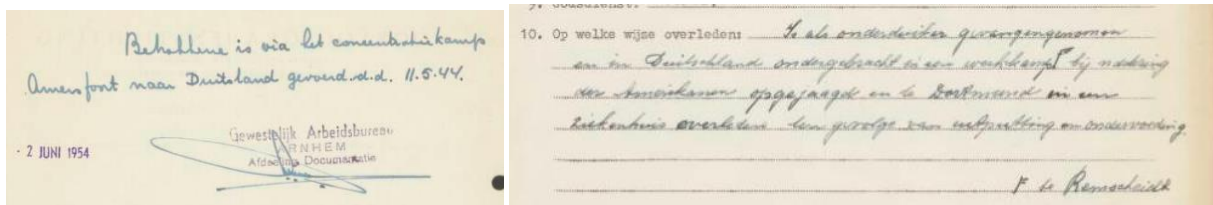 Betrokkene is via het concentratiekamp
Amersfoort naar Duitsland gevoerd. d.d. 11.5.44.
Gewestelijk Arbeidsbureau
ARNHEM
Afdeeling Documentatie
- 2 JUNI 1954
9. Godsdienst:
10. Op welke wijze overleden: Is als onderduiker gevangengenomen
en in Duitschland ondergebracht in een werkkamp Γ bij nadering
der Amerikanen opgejaagd en te Dortmund in een
ziekenhuis overleden ten gevolge van uitputting en ondervoeding.
Γ te Remscheidt